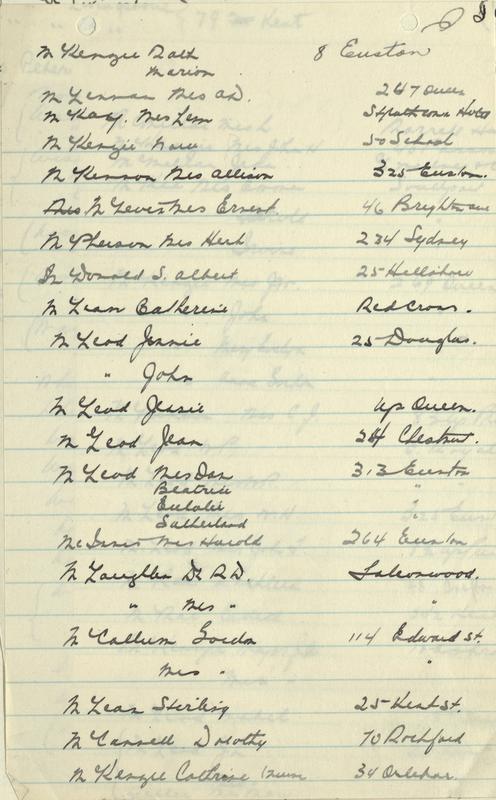 79 Kent
M Kenzie Ralh 8 Euston
Marion
M Lennan Mrs A.D. 267 Queen
M Kay, Mrs Lem Strathcona Hotel
M Kenzie 50 School
M Kinnon Mrs Allison 325 Euston.
M Mrs Ernest 46 Brighton ave
M Pherson Mrs Herb 234 Sydney
M Donald S. Albert 25 Hillsboro
M Lean Catherine Red Cross.
M Leod Jennie 25 Douglas.
" John
M Leod Jessie up Queen.
M Leod Jean 264 Chestnut.
M Leod Mrs Dan 313 Euston
Beatrice "
Eulalie "
Sutherland
McInnis Mrs Harold 264 Euston
M Laughlin Dr R.D. Falconwood.
" Mrs " "
M Callum Gordon 114 Edward St.
Mrs " "
M Lean Sterling 25 Kent St.
M Cannell Dorothy 70 Rochford
M Kenzie Cathrine 34 Orlebar.